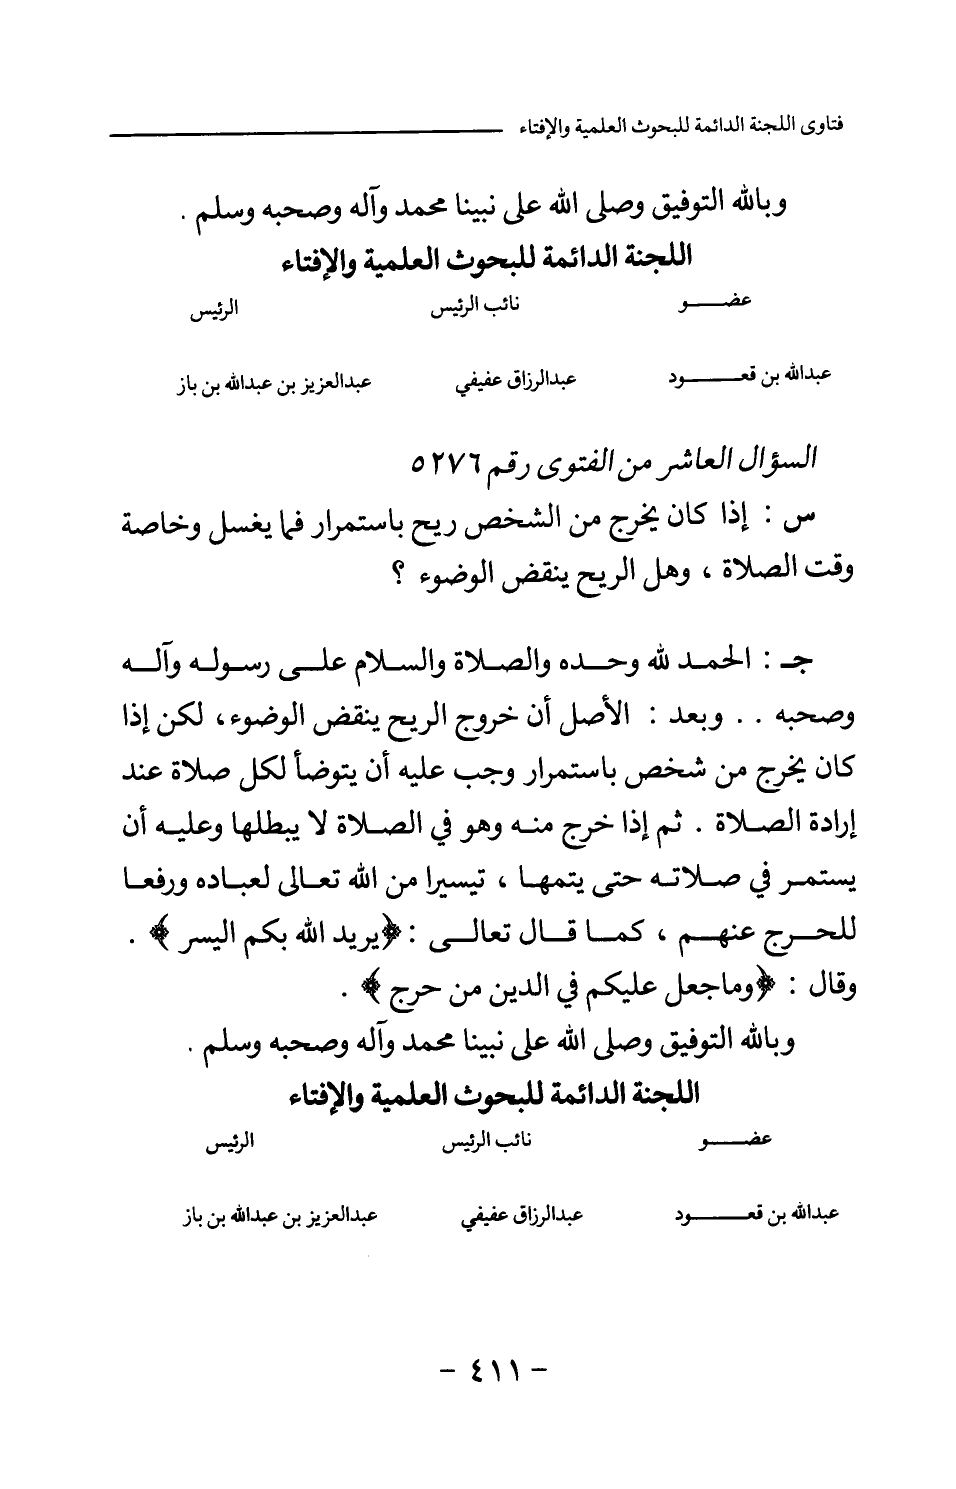 فتاوى اللجنة الدائمة للبحوث العلمية والإفتاء
وبالله التوفيق وصلى الله على نبينا محمد وآله وصحبه وسلم .
اللجنة الدائمة للبحوث العلمية والإفتاء
عضـــو نائب الرئيس الرئيس
عبدالله بن قعـــــود عبدالرزاق عفيفي عبدالعزيز بن عبدالله بن باز
السؤال العاشر من الفتوى رقم ٥٢٧٦
س : إذا كان يخرج من الشخص ريح باستمرار فما يغسل وخاصة
وقت الصلاة ، وهل الريح ينقض الوضوء ؟
جـ : الحمـد لله وحـــده والصـلاة والسـلام علـــى رسـولـه وآلـــه
وصحبه . . وبعد : الأصل أن خروج الريح ينقض الوضوء، لكن إذا
كان يخرج من شخص باستمرار وجب عليه أن يتوضأ لكل صلاة عند
إرادة الصـلاة . ثم إذا خرج منـه وهو في الصـلاة لا يبطلها وعليـه أن
يستمـر في صـلاتـه حتى يتمهـا ، تيسيرا من الله تعـالى لعبـاده ورفعـا
للحـــرج عنهـــم ، كمـــا قـــال تعالـــى : ﴿يريد الله بكم اليسر ﴾ .
وقال : ﴿وماجعل عليكم في الدين من حرج ﴾ .
وبالله التوفيق وصلى الله على نبينا محمد وآله وصحبه وسلم .
اللجنة الدائمة للبحوث العلمية والإفتاء
عضـــو نائب الرئيس الرئيس
عبدالله بن قعـــــود عبدالرزاق عفيفي عبدالعزيز بن عبدالله بن باز
- ٤١١ -